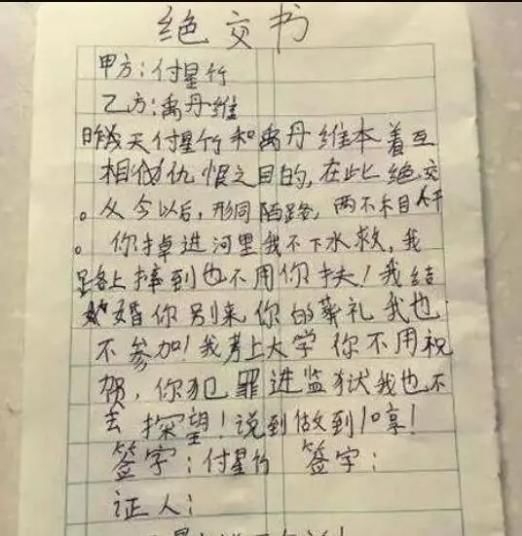 绝交书
甲方：付星竹
乙方：禹丹维
昨天付星竹和禹丹维本着互
相仇恨之目的，在此绝交
。从今以后，形同陌路，两不相干
。你掉进河里我不下水救，我
路上摔到也不用你扶！我结
婚你别来你的葬礼我也
不参加！我考上大学你不用祝
贺，你犯罪进监狱我也不
去探望！说到做到！哼！
签字：付星竹 签字：
证人：